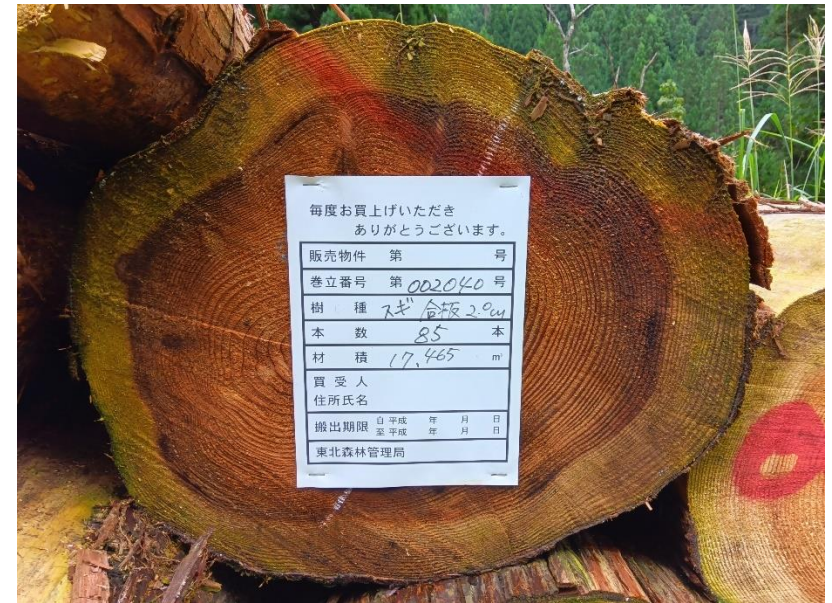 毎度お買上げいただき
ありがとうございます。
販売物件 第 号
巻立番号 第 002040 号
樹種 スギ 合板 2.0m
本数 85 本
材積 17.465 m³
買受人
住所氏名
搬出期限 自 平成 年 月 日
至 平成 年 月 日
東北森林管理局